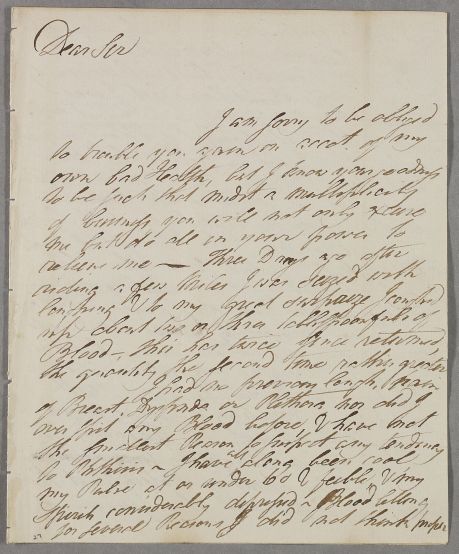 Dear Sir
I am sorry to be obliged
to trouble you again on acct. of my
own bad Health, but I know your readiness
to be such that midst a multiplicity
of business you will not only excuse
me but do all in your power to
relieve me — Three Days ago after
riding a few Miles I was seized with
Coughing & to my great surprize I coughed
up about two or three tablespoonfuls of
Blood — this has twice since returned,
the quantity the second time rather greater
I had no previous Cough, Pain
of Breast, Dyspnœa or Plethora nor did I
ever spit any Blood before, I have not
the smallest Reason to suspect any tendency
to Phthisis — I have all along been cool
my Pulse at or under 60 & feeble, & my
Spirits considerably depressed — Blood letting
for several Reasons I did not think proper